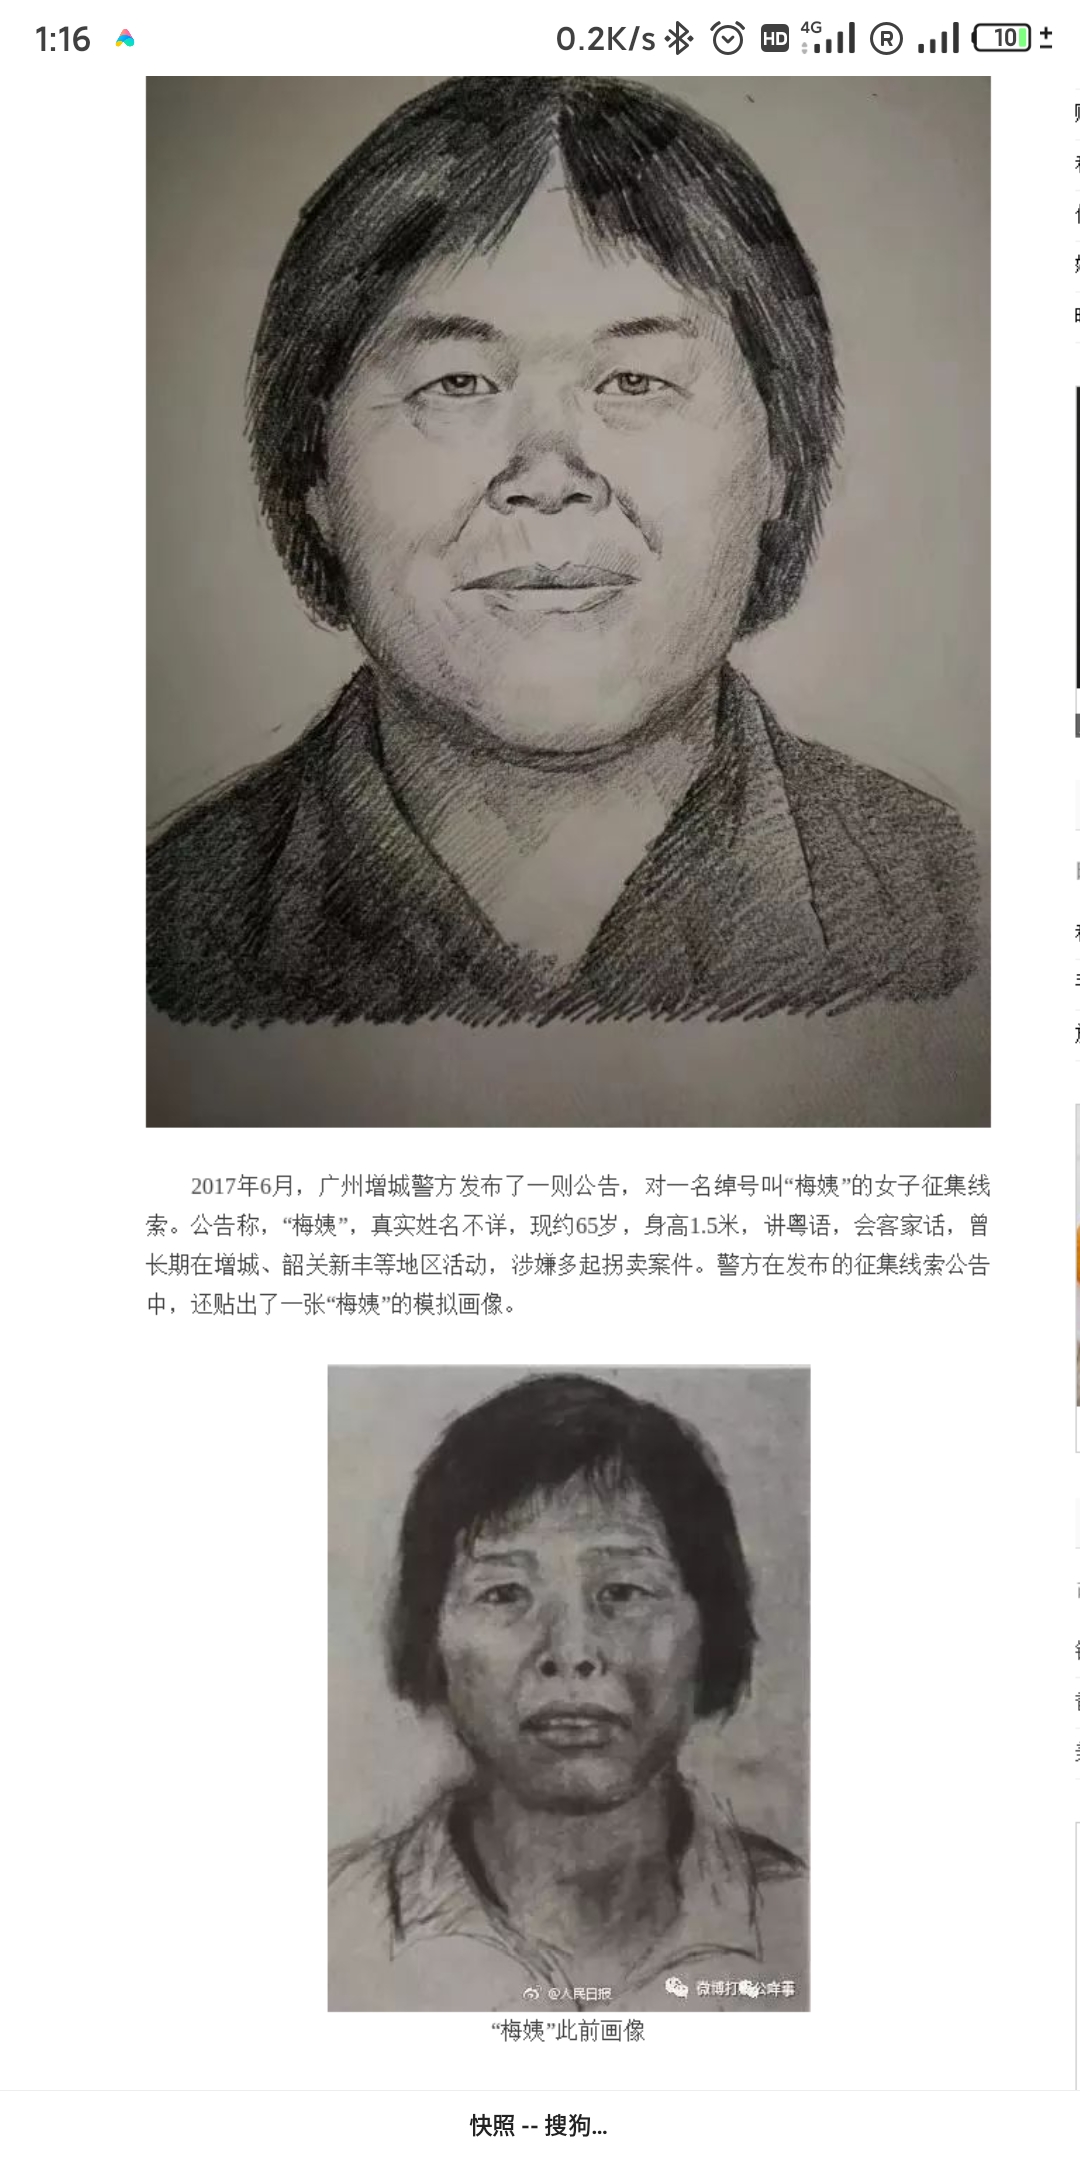 1:16
0.2K/s
HD
4G
R
10
2017年6月，广州增城警方发布了一则公告，对一名绰号叫“梅姨”的女子征集线
索。公告称，“梅姨”，真实姓名不详，现约65岁，身高1.5米，讲粤语，会客家话，曾
长期在增城、韶关新丰等地区活动，涉嫌多起拐卖案件。警方在发布的征集线索公告
中，还贴出了一张“梅姨”的模拟画像。
@人民日报
微博打
“梅姨”此前画像
快照 -- 搜狗...